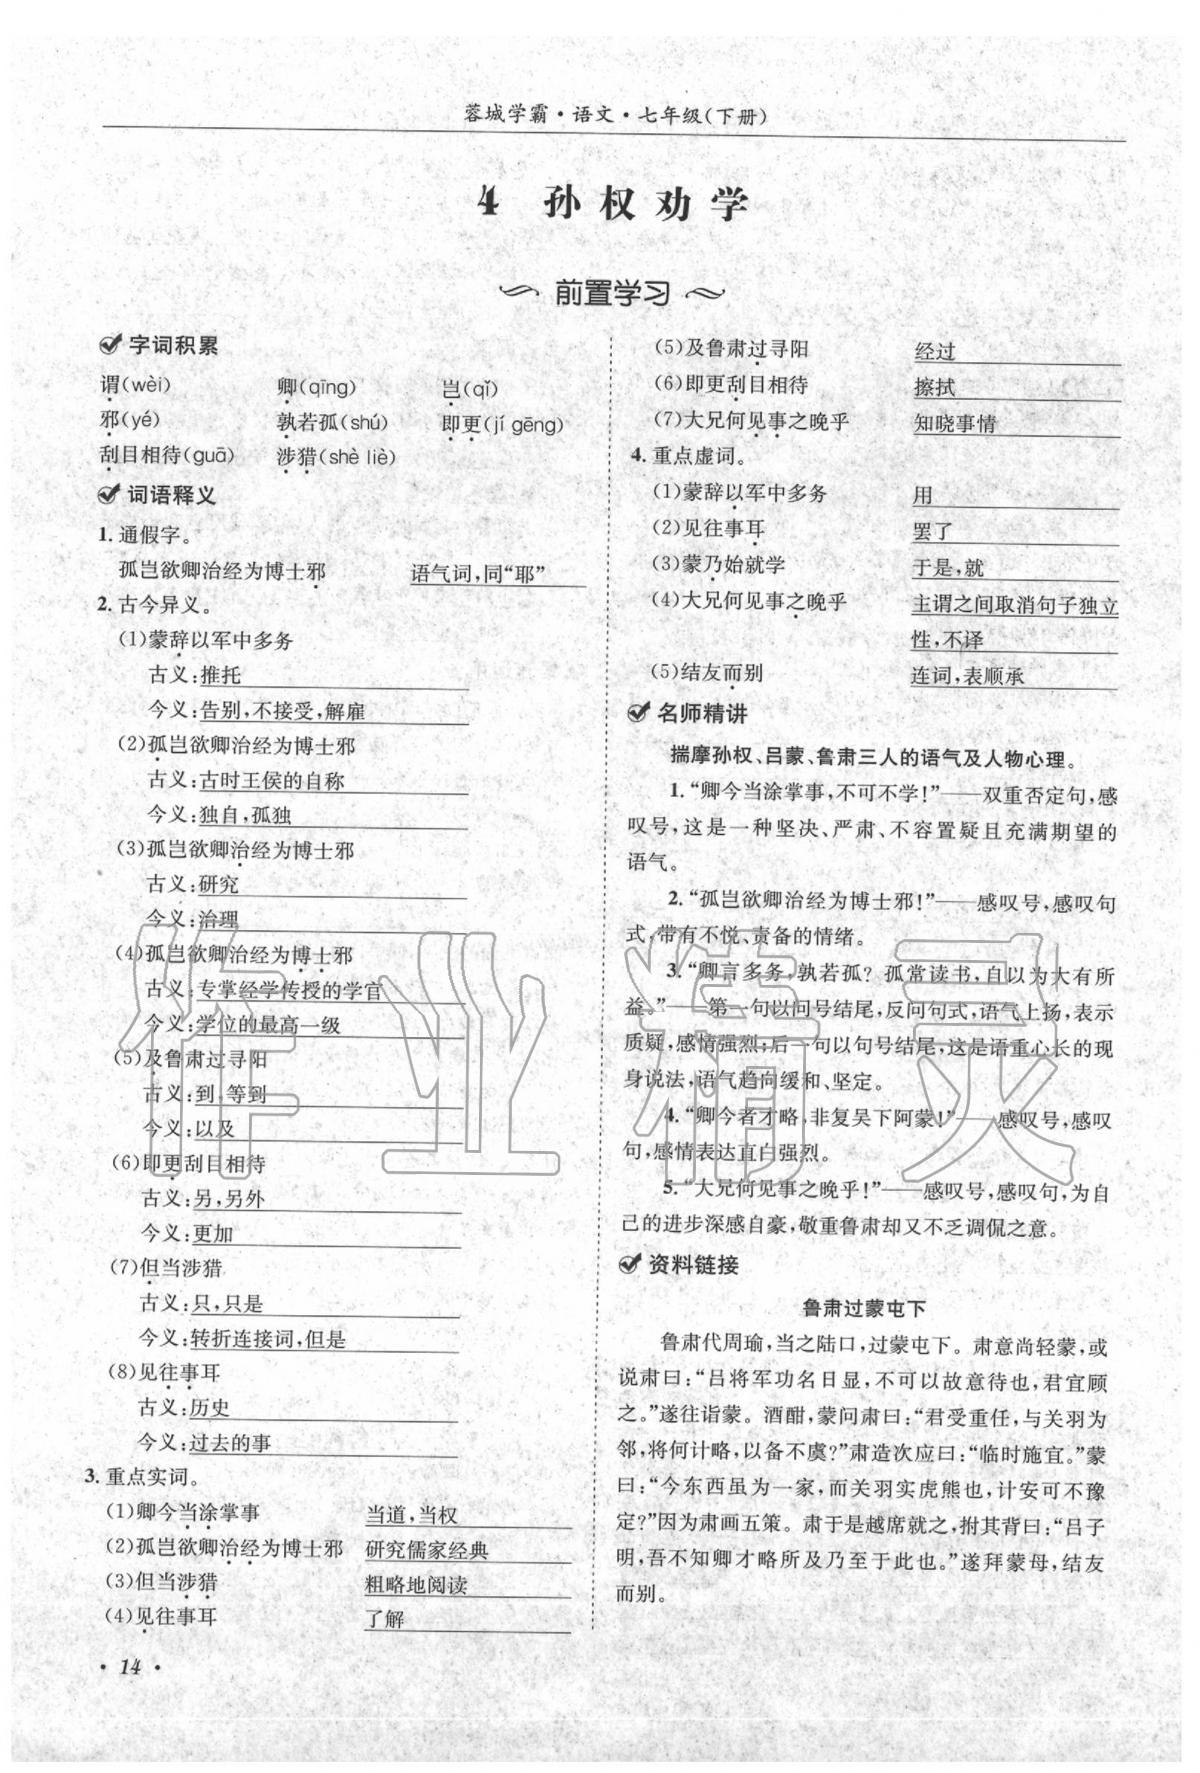 蓉城学霸·语文·七年级(下册)
4 孙权劝学
前置学习
字词积累
谓(wèi) 卿(qīng) 岂(qǐ)
邪(yé) 孰若孤(shú) 即更(jí gēng)
刮目相待(guā) 涉猎(shè liè)
词语释义
1. 通假字。
孤岂欲卿治经为博士邪 语气词,同“耶”
2. 古今异义。
(1)蒙辞以军中多务
古义:推托
今义:告别,不接受,解雇
(2)孤岂欲卿治经为博士邪
古义:古时王侯的自称
今义:独自,孤独
(3)孤岂欲卿治经为博士邪
古义:研究
今义:治理
(4)孤岂欲卿治经为博士邪
古义:专掌经学传授的学官
今义:学位的最高一级
(5)及鲁肃过寻阳
古义:到,等到
今义:以及
(6)即更刮目相待
古义:另,另外
今义:更加
(7)但当涉猎
古义:只,只是
今义:转折连接词,但是
(8)见往事耳
古义:历史
今义:过去的事
3. 重点实词。
(1)卿今当涂掌事 当道,当权
(2)孤岂欲卿治经为博士邪 研究儒家经典
(3)但当涉猎 粗略地阅读
(4)见往事耳 了解
(5)及鲁肃过寻阳 经过
(6)即更刮目相待 擦拭
(7)大兄何见事之晚乎 知晓事情
4. 重点虚词。
(1)蒙辞以军中多务 用
(2)见往事耳 罢了
(3)蒙乃始就学 于是,就
(4)大兄何见事之晚乎 主谓之间取消句子独立
性,不译
(5)结友而别 连词,表顺承
名师精讲
揣摩孙权、吕蒙、鲁肃三人的语气及人物心理。
1. “卿今当涂掌事,不可不学!”——双重否定句,感
叹号,这是一种坚决、严肃、不容置疑且充满期望的
语气。
2. “孤岂欲卿治经为博士邪!”——感叹号,感叹句
式,带有不悦、责备的情绪。
3. “卿言多务,孰若孤?孤常读书,自以为大有所
益。”——第一句以问号结尾,反问句式,语气上扬,表示
质疑,感情强烈;后一句以句号结尾,这是语重心长的现
身说法,语气趋向缓和、坚定。
4. “卿今者才略,非复吴下阿蒙!”——感叹号,感叹
句,感情表达直白强烈。
5. “大兄何见事之晚乎!”——感叹号,感叹句,为自
己的进步深感自豪,敬重鲁肃却又不乏调侃之意。
资料链接
鲁肃过蒙屯下
鲁肃代周瑜,当之陆口,过蒙屯下。肃意尚轻蒙,或
说肃曰:“吕将军功名日显,不可以故意待也,君宜顾
之。”遂往诣蒙。酒酣,蒙问肃曰:“君受重任,与关羽为
邻,将何计略,以备不虞?”肃造次应曰:“临时施宜。”蒙
曰:“今东西虽为一家,而关羽实虎熊也,计安可不豫
定?”因为肃画五策。肃于是越席就之,拊其背曰:“吕子
明,吾不知卿才略所及乃至于此也。”遂拜蒙母,结友
而别。
· 14 ·
作业精灵